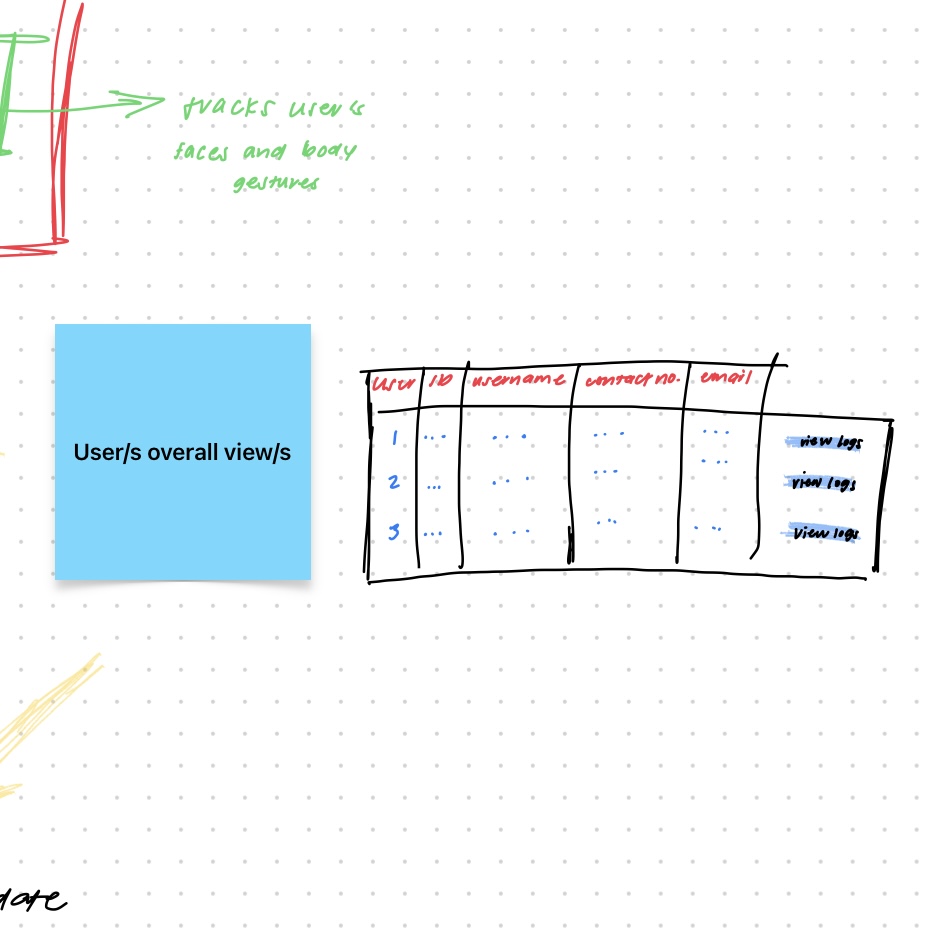 tracks user/s
faces and body
gestures
User/s overall view/s
User ID username contact no. email
1 ... ... ... ... view logs
2 ... ... ... ... view logs
3 ... ... ... ... view logs
date